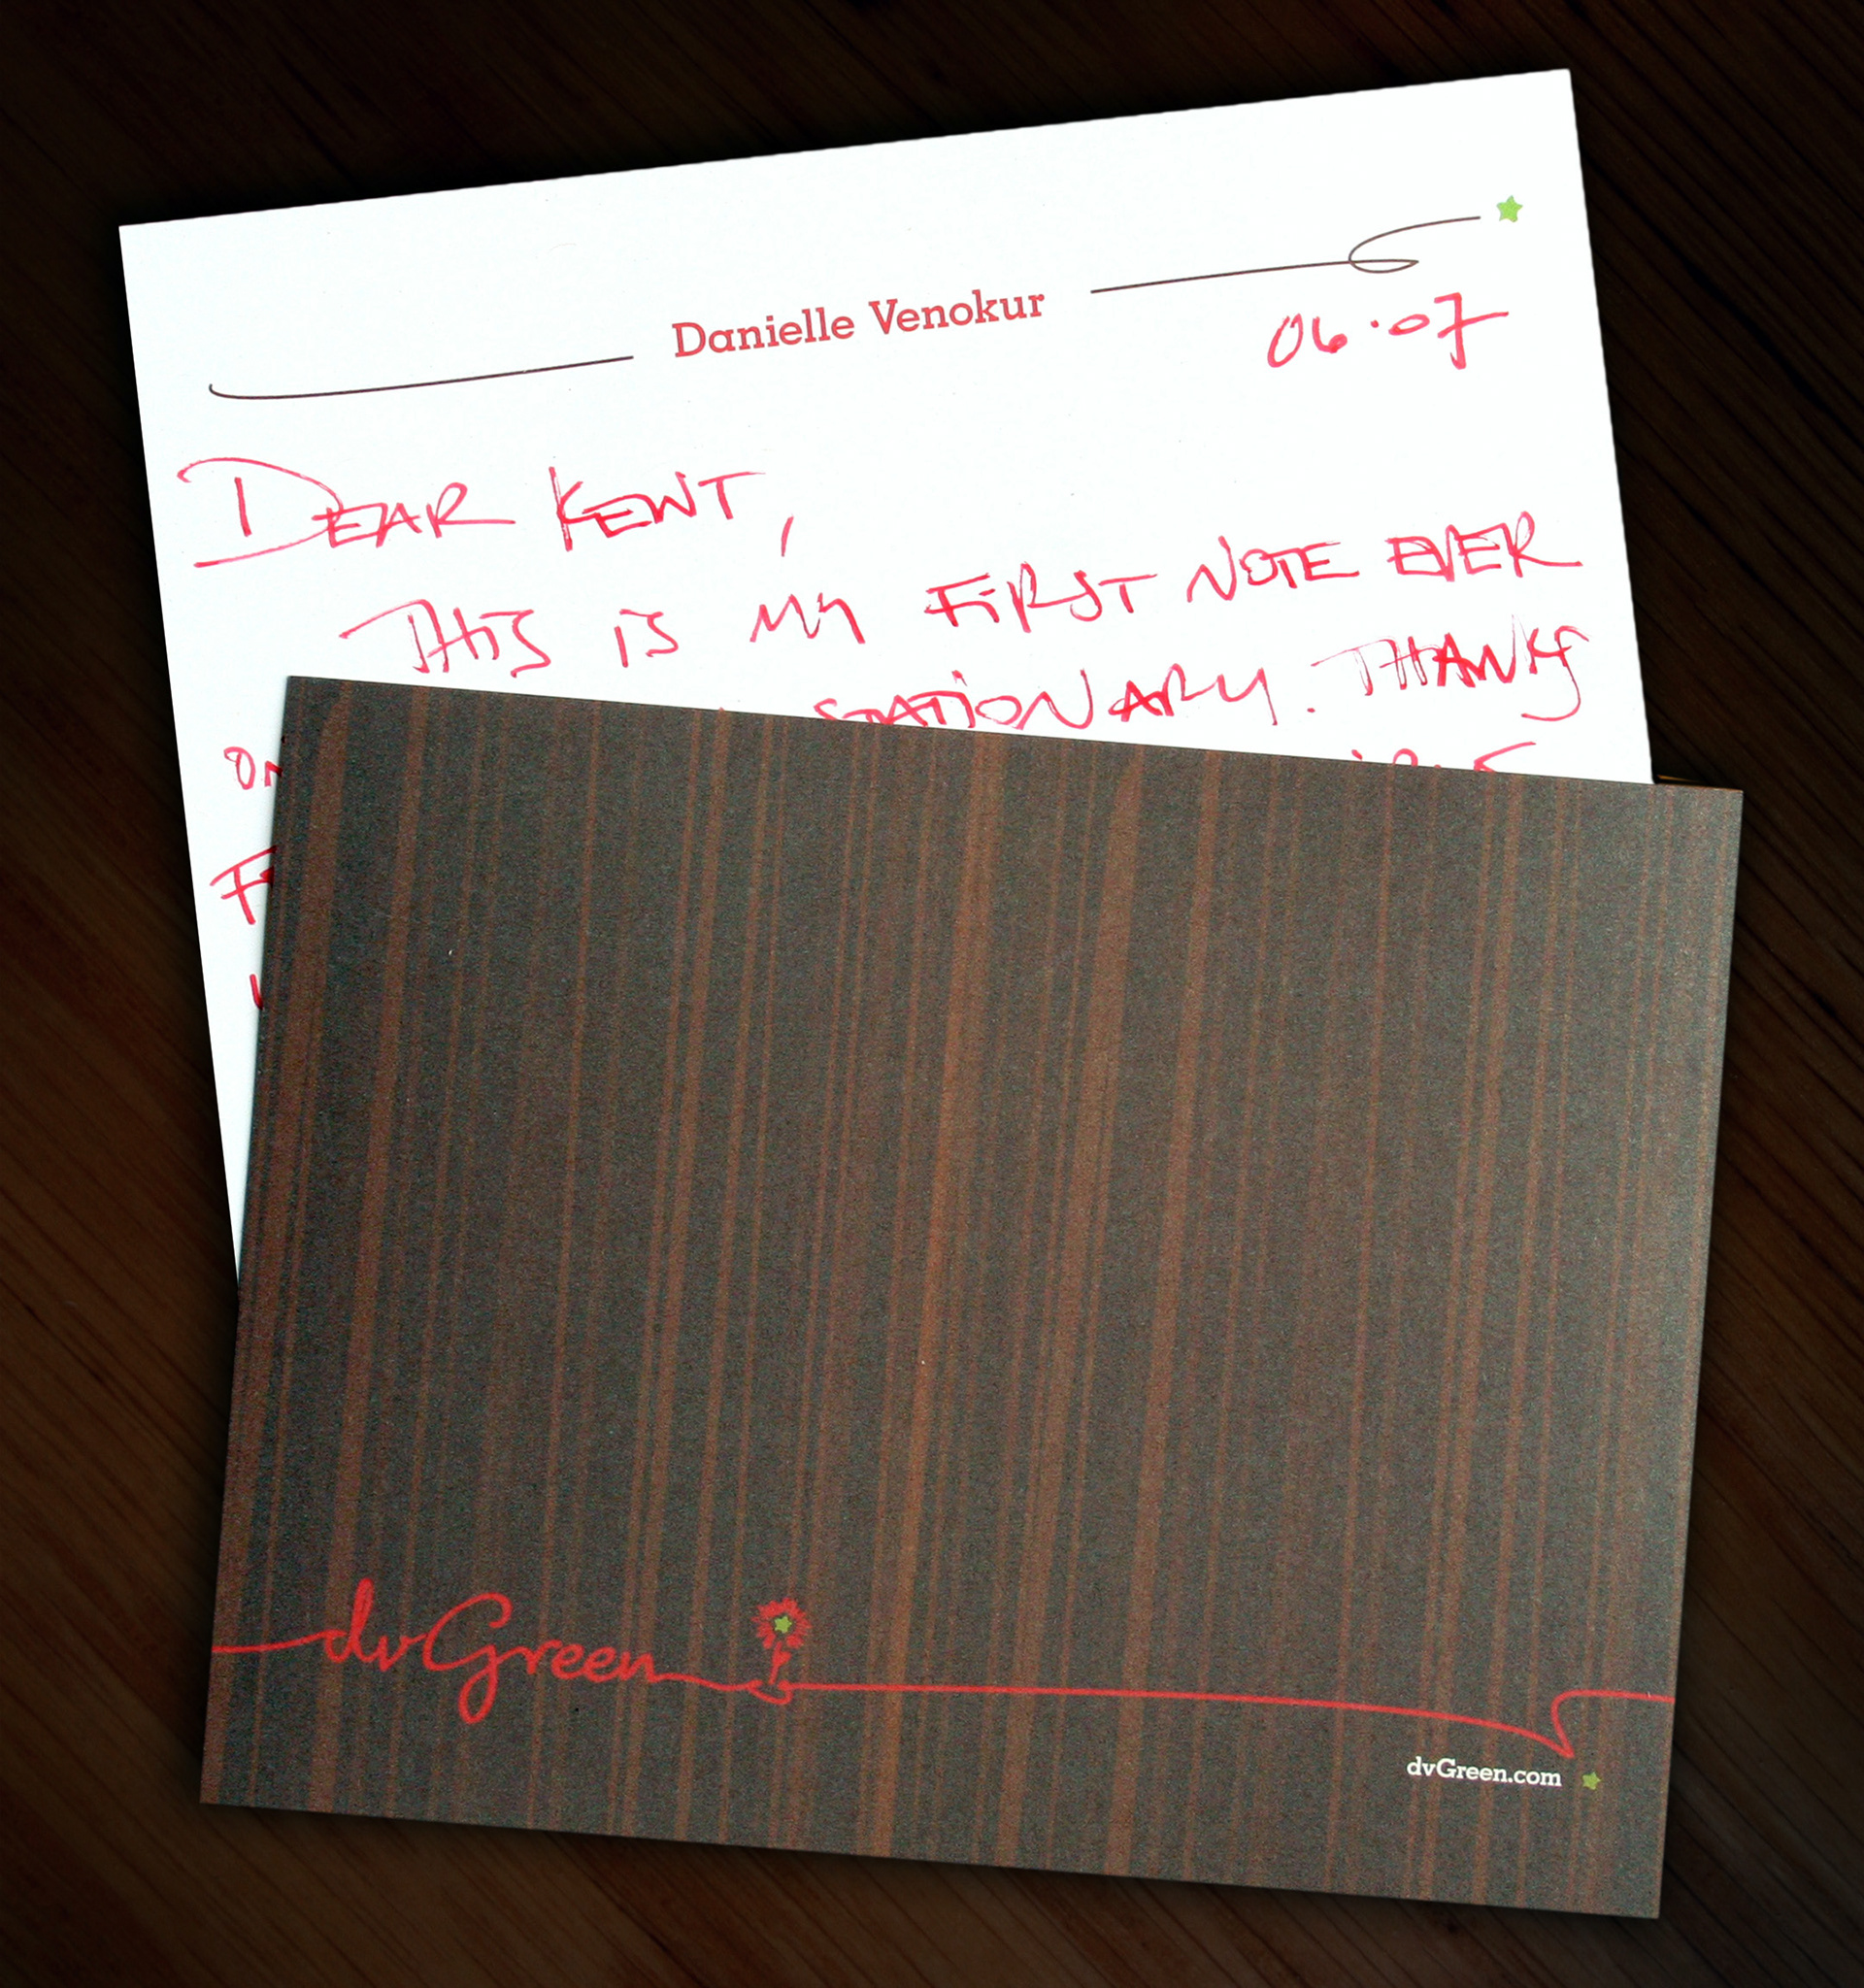 Danielle Venokur
06.07
DEAR KENT,
THIS IS MY FIRST NOTE EVER
STATIONARY. THANKS
dvGreen
dvGreen.com